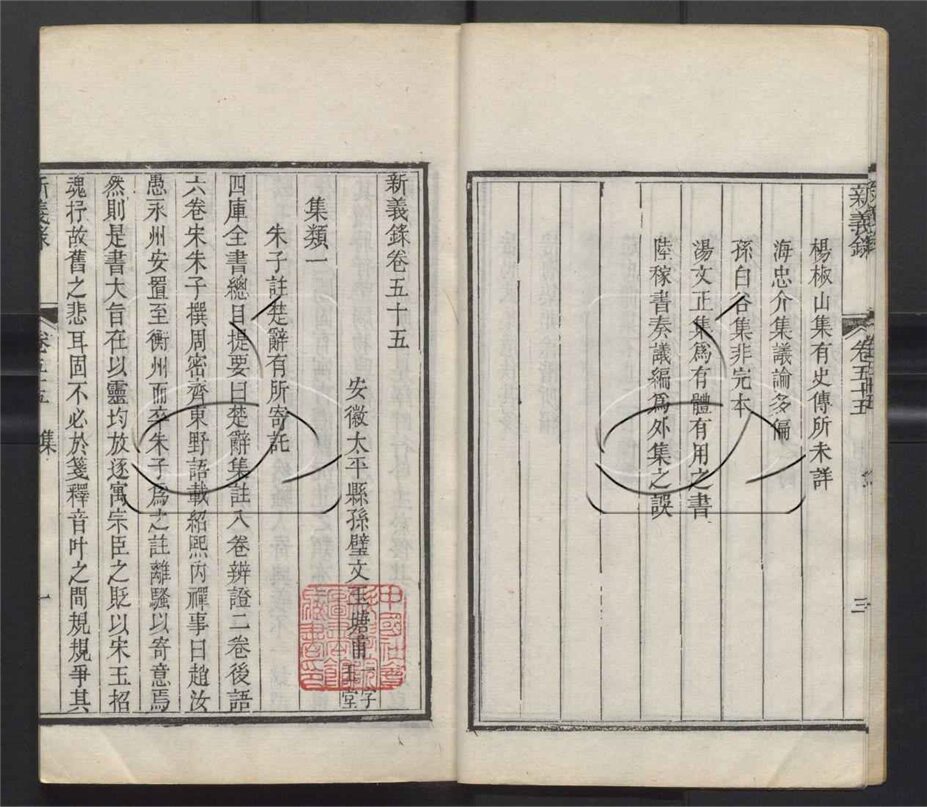 新義錄
卷五十五
三
楊椒山集有史傳所未詳
海忠介集議論多偏
孫白谷集非完本
湯文正集爲有體有用之書
陸稼書奏議編爲外集之誤
新義錄卷五十五
安徽太平縣孫璧文玉塘甫一字玉堂
集類一
朱子註楚辭有所寄託
四庫全書總目提要曰楚辭集註八卷辨證二卷後語
六卷宋朱子撰周密齊東野語載紹熙內禪事曰趙汝
愚永州安置至衡州而卒朱子爲之註離騷以寄意焉
然則是書大旨在以靈均放逐寓宗臣之貶以宋玉招
魂抒故舊之悲耳固不必於箋釋音叶之間規規爭其
新義錄
卷五十五
集
一